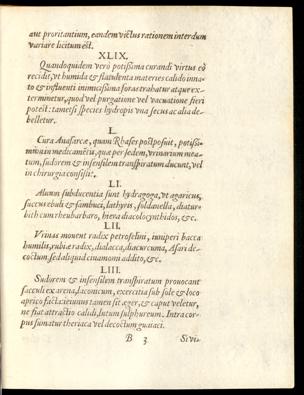 aut proritantium, eandem victus rationem interdum
variare licitum est.
XLIX.
Quandoquidem verò potissima curandi virtus eò
recidit, ut humida & flatulenta materies calido inna-
to & influenti inimicissima foras trahatur atque ex-
terminetur, quod vel purgatione vel vacuatione fieri
potest: tametsi species hydropis una secus ac alia de-
belletur.
L.
Cura Anasarcæ, quam Rhases postposuit, potissi-
mùm in medicamẽtis, quæ per sedem, urinarium mea-
tum, sudorem & insensilem transpiratum ducunt, vel
in chirurgia consistit.
LI.
Alvum subducentia sunt hydragoga, ut agaricus,
succus ebuli & sambuci, lathyris, soldanella, diatur-
bith cum rheubarbaro, hiera diacolocynthidos, &c.
LII.
Urinas movent radix petroselini, iuniperi bacca
humilis, rubiæ radix, dialacca, diacurcuma, Asari de-
coctum, sed aliquid cinamomi addito, &c.
LIII.
Sudorem & insensilem transpiratum provocant
sacculi ex arena, laconicum, exercitia sub sole & loco
aprico facta: ieiunus tamen sit æger, & caput veletur,
ne fiat attractio calidi, lutum sulphureum. Intra cor-
pus sumatur theriaca vel decoctum guaiaci.
B 3 Si vi-